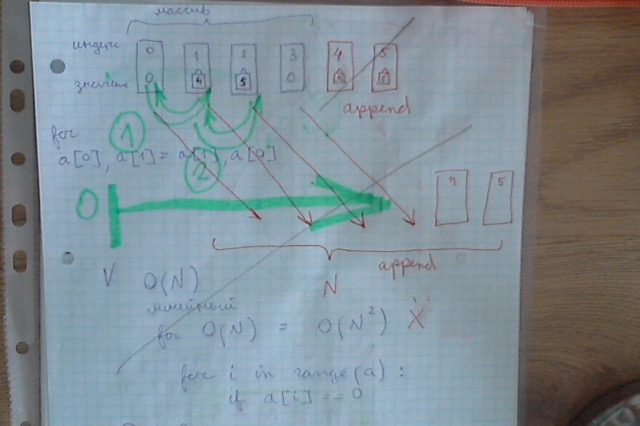 массив
индекс 0 1 2 3 4 5
значение 0 4 5 0
append
for 1
a[0], a[1] = a[1], a[0]
2
4 5
0
append
V O(N) N
линейный
for O(N) = O(N²) X
for i in range(a):
if a[i] == 0